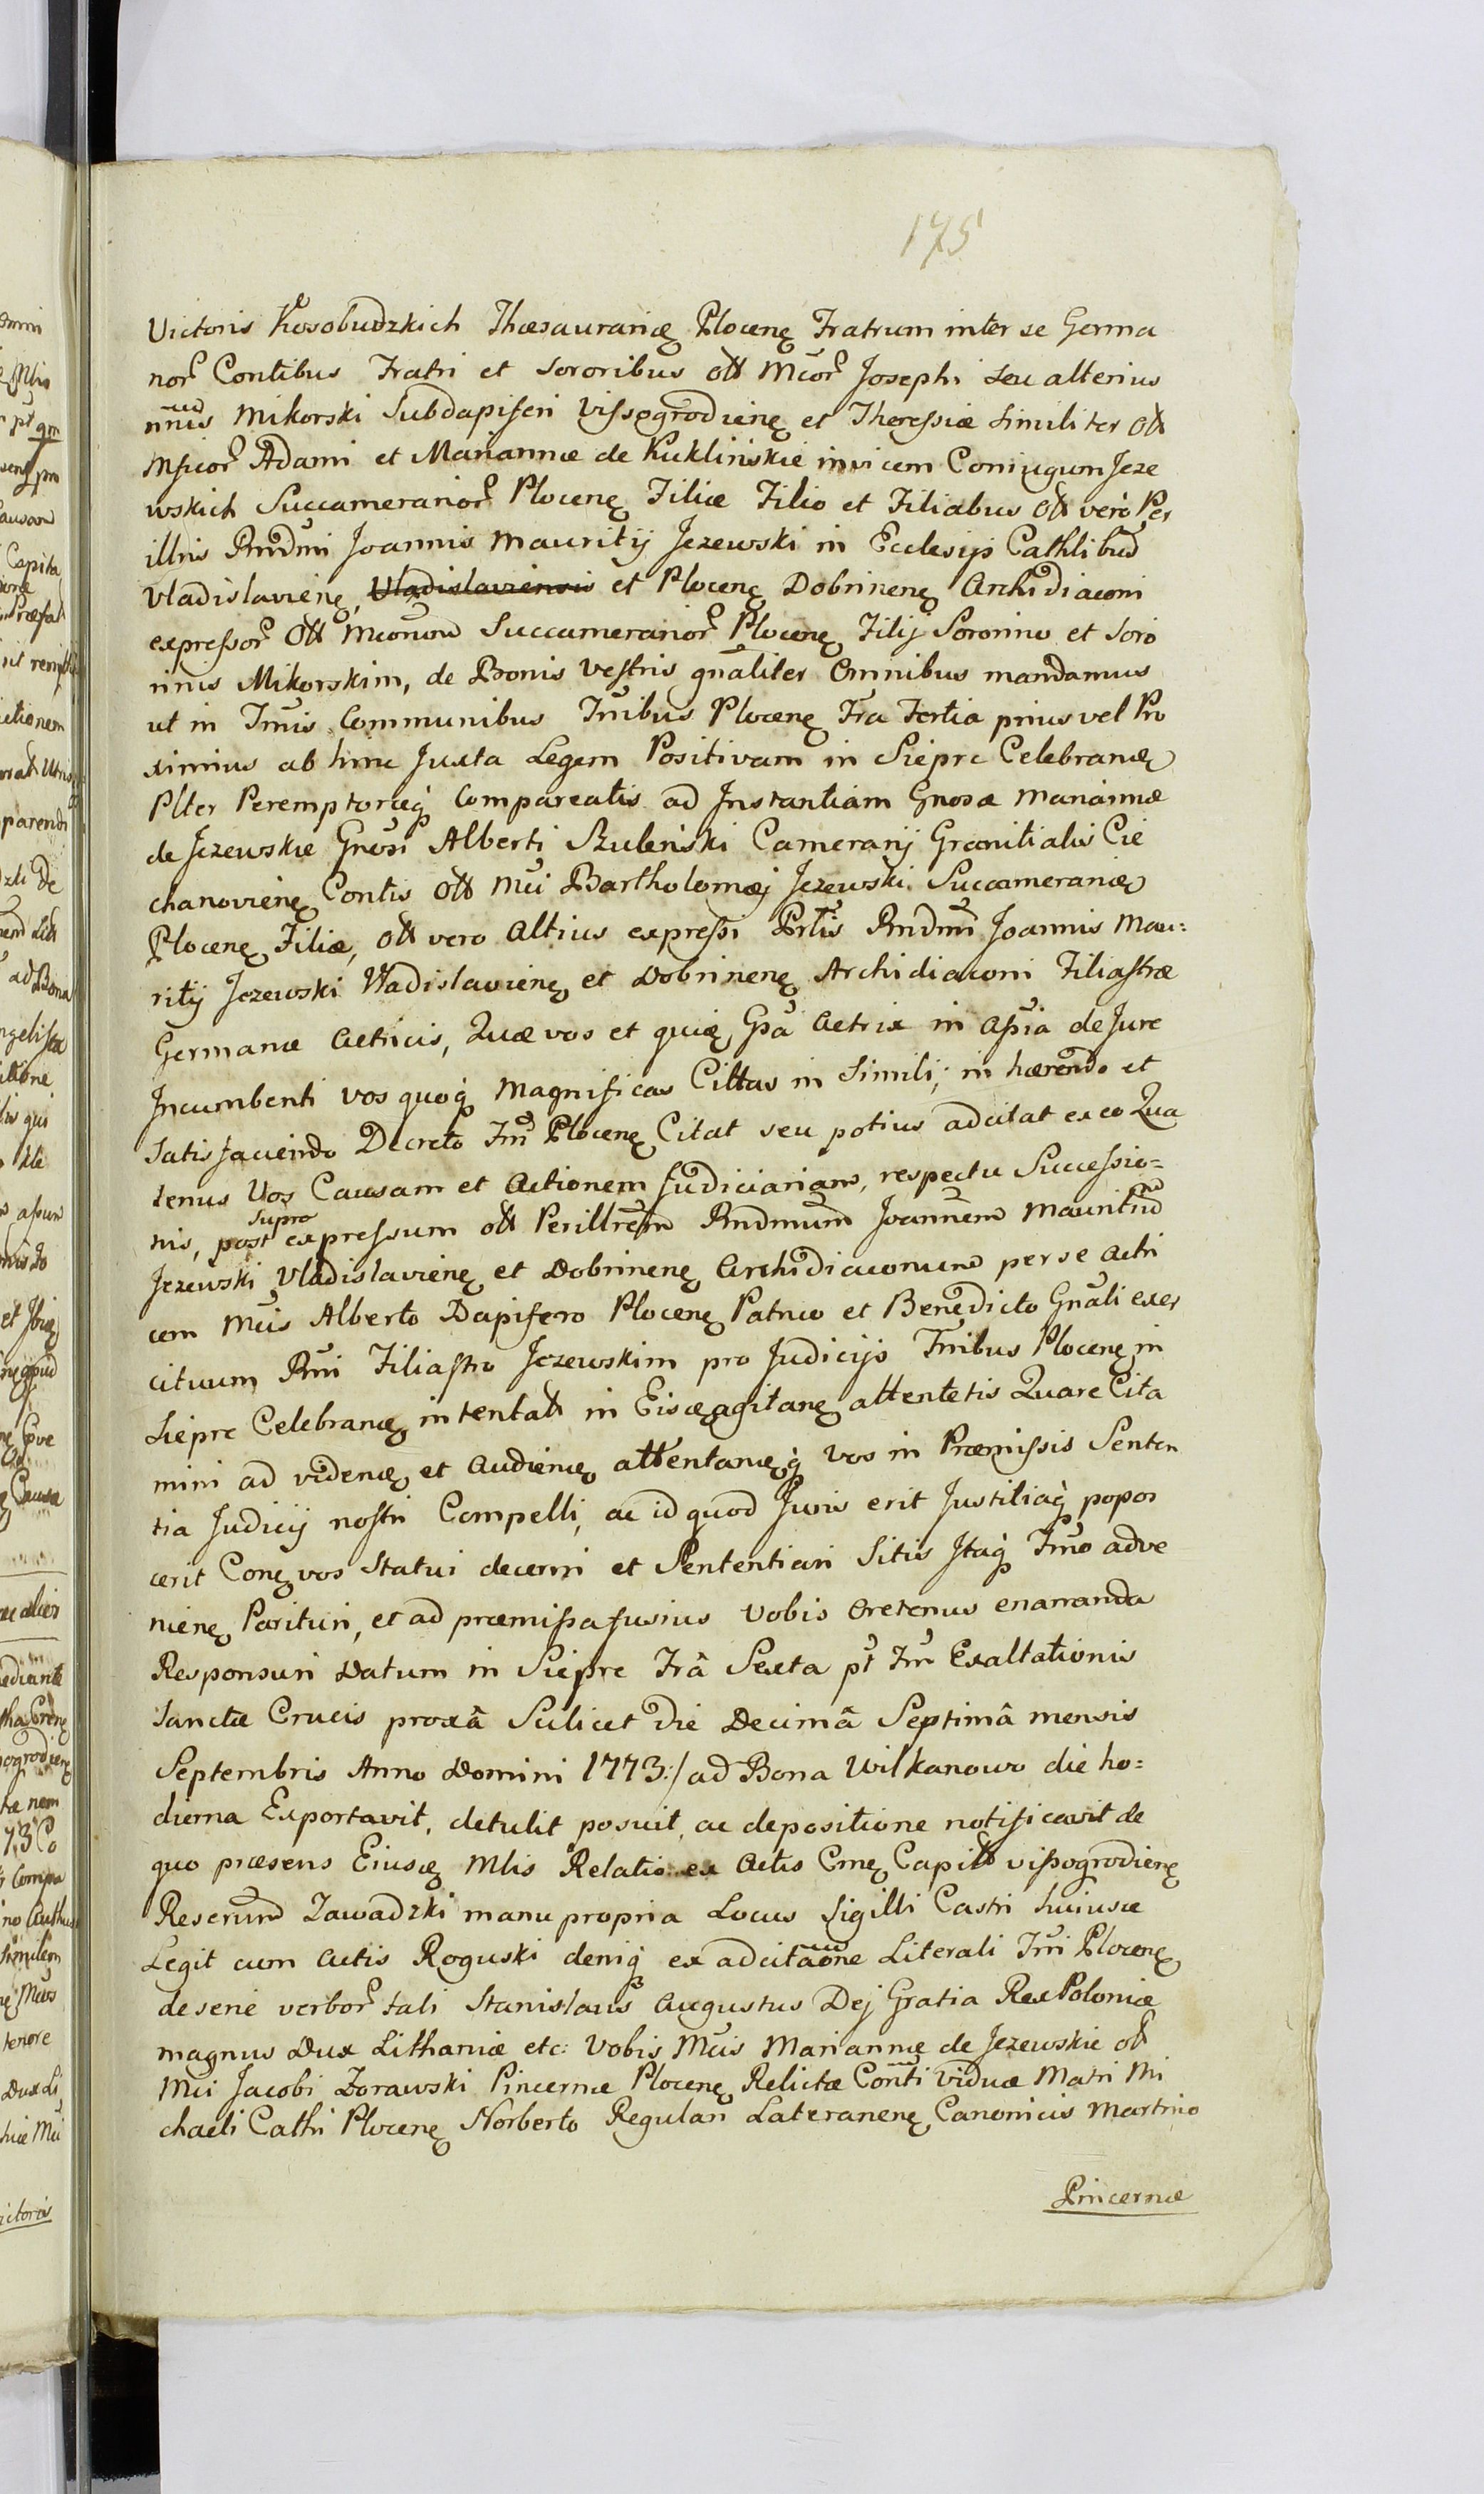 175
Victoris Kosobudzkich Thesaurariæ Plocenę Fratrum inter se Germa
nor Contibus Fratri et Sororibus ott Mcor Josephi seu alterius
nnis Mikorski Subdapiferi Vissogrodienę et Theressiæ similiter ott
Mficor Adami et Mariannæ de Kuklińskie invicem Coniugum Jeze
wskich Succamerarior Plocenę Filiæ Filio et Filiabus ott vero Per
illris Rndmi Joannis Mauritij Jezewski in Ecclesijs Cathlibus
Vladislavienę, Vladislaviensis et Plocenę Dobrinenę Archidiaconi
expressor ott Mcorum Succamerarior Plocenę Filij Sororino et Soro
rinis Mikorskim, de Bonis Vestris gnaliter Omnibus mandamus
ut in Tmis Communibus Tribus Plocenę Fra Tertia prius vel Pro
ximius ab hinc Juxta Legem Positivam in Siepre Celebranę
Plter Peremptorieq Compareatis ad Instantiam Gnosæ Mariannæ
de Jezewskie Gnosi Alberti Szuleński Camerarij Granitialis Cie
chanovienę Contis ott Mci Bartholomæj Jezewski Succamerariæ
Plocenę Filiæ, ott vero altius expressi Prlis Rndmi Joannis Mau:
ritij Jezewski Wladislavienę et Dobrinenę Archidiaconi Filiastræ
Germanæ Actricis, Quæ vos et quię Gsa Actrix in Assia de Jure
Incumbenti vos quoq Magnificas Cittas in Simili; in hærendo et
Satisfaciendo Decreto Tm Plocenę Citat seu potius adcitat ex eo Qua
tenus Vos Causam et Actionem Judiciariam, respectu Successio=
nis, post supra expressum ott Perillrem Rndmum Joannem Mauritiu
Jezewski Vladislavienę et Dobrinenę Archidiaconum per se Actri
cem Mcis Alberto Dapifero Plocenę Patruo et Benedicto Gnali exer
cituum Rni Filiastro Jezewskim pro Judicijs Tribus Plocenę in
Siepre Celebranę intentatt in Eiscę agitanę attentetis Quare Cita
mini ad videndę et Audienę attentanęq vos in Præmissis Senten
tia Judicij nostri Compelli, ac id quod Juris erit Justitiaq popos
cerit Conę vos Statui decerni et Sententiari Sitis Itaq Tmo adve
nienę Parituri, et ad præmissa fusius Vobis oretenus enarranda
Responsuri Datum in Siepre Frâ Sexta pt Fm Exaltationis
Sanctæ Crucis proxâ Scilicet die Decimâ Septimâ mensis
Septembris Anno Domini 1773:/ ad Bona Wilkanowo die ho=
dierna Exportavit, detulit posuit, ac depositione notificavit de
quo præsens Eiusę Mlis Relatio ex Actis Cmę Capitt vissogrodienę
Reserund Zawadzki manu propria Locus Sigilli Castri huiusce
Legit cum Actis Roguski deniq ex adcitaone Literali Tmi Plocenę
de serie verbor tali Stanislaus Augustus Dej Gratia Rex Poloniæ
magnus Dux Lithaniæ etc: Vobis Mcis Mariannæ de Jezewskie ott
Mci Jacobi Zorawski Pincernæ Plocenę Relictæ Conti viduæ Matri Mi
chaeli Cathri Plocenę Norberto Regulari Lateranenę Canonicis Martino
Pincernæ